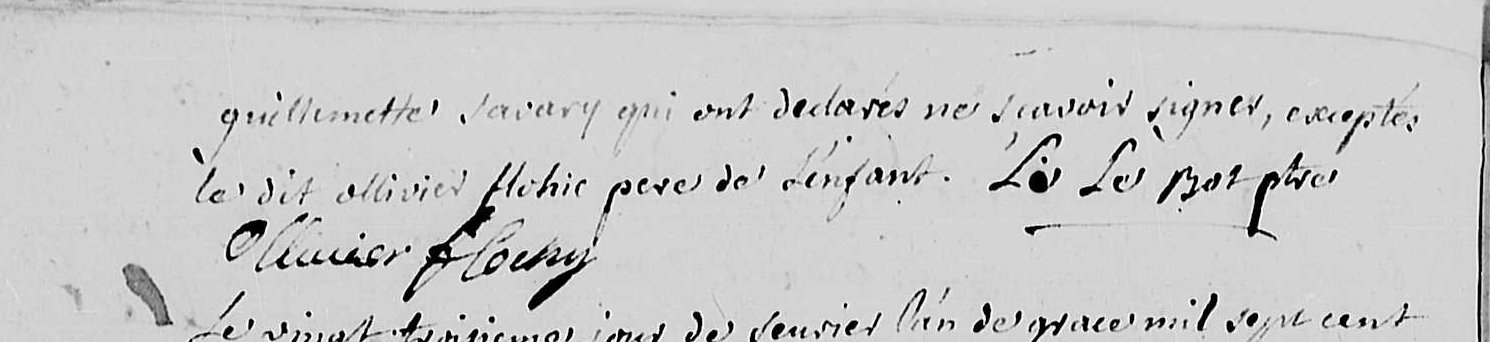 guillemette savary qui ont declarés ne scavoir signer, exceptés
le dit ollivier flohic pere de l'enfant. Le Bot ptre
Ollivier flochy
Le vingt troisieme jour de feuvrier l'an de grace mil sept cent